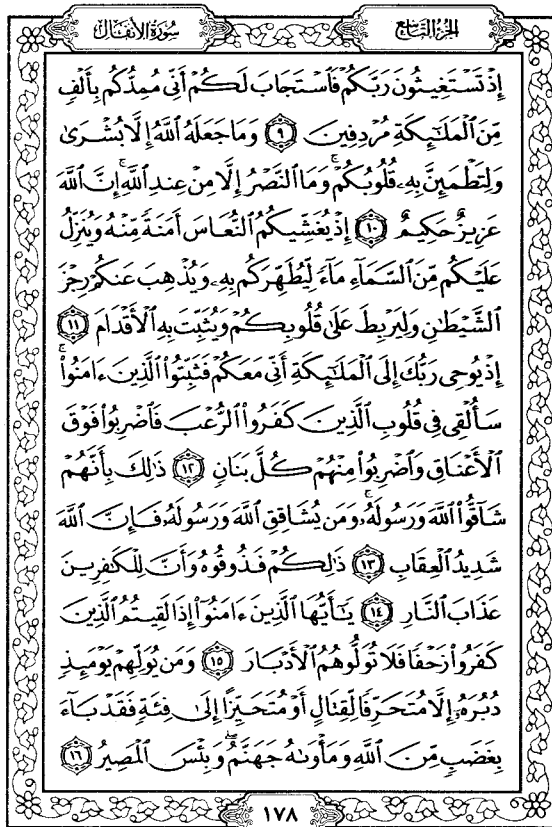 سُورَةُ الأَنفَال
الجُزءُ التَّاسِع
إِذْ تَسْتَغِيثُونَ رَبَّكُمْ فَٱسْتَجَابَ لَكُمْ أَنِّى مُمِدُّكُم بِأَلْفٍ
مِّنَ ٱلْمَلَـٰٓئِكَةِ مُرْدِفِينَ ٩ وَمَا جَعَلَهُ ٱللَّهُ إِلَّا بُشْرَىٰ
وَلِتَطْمَئِنَّ بِهِۦ قُلُوبُكُمْ ۚ وَمَا ٱلنَّصْرُ إِلَّا مِنْ عِندِ ٱللَّهِ ۚ إِنَّ ٱللَّهَ
عَزِيزٌ حَكِيمٌ ١٠ إِذْ يُغَشِّيكُمُ ٱلنُّعَاسَ أَمَنَةً مِّنْهُ وَيُنَزِّلُ
عَلَيْكُم مِّنَ ٱلسَّمَآءِ مَآءً لِّيُطَهِّرَكُم بِهِۦ وَيُذْهِبَ عَنكُمْ رِجْزَ
ٱلشَّيْطَـٰنِ وَلِيَرْبِطَ عَلَىٰ قُلُوبِكُمْ وَيُثَبِّتَ بِهِ ٱلْأَقْدَامَ ١١
إِذْ يُوحِى رَبُّكَ إِلَى ٱلْمَلَـٰٓئِكَةِ أَنِّى مَعَكُمْ فَثَبِّتُوا۟ ٱلَّذِينَ ءَامَنُوا۟ ۚ
سَأُلْقِى فِى قُلُوبِ ٱلَّذِينَ كَفَرُوا۟ ٱلرُّعْبَ فَٱضْرِبُوا۟ فَوْقَ
ٱلْأَعْنَاقِ وَٱضْرِبُوا۟ مِنْهُمْ كُلَّ بَنَانٍ ١٢ ذَٰلِكَ بِأَنَّهُمْ
شَآقُّوا۟ ٱللَّهَ وَرَسُولَهُۥ ۚ وَمَن يُشَاقِقِ ٱللَّهَ وَرَسُولَهُۥ فَإِنَّ ٱللَّهَ
شَدِيدُ ٱلْعِقَابِ ١٣ ذَٰلِكُمْ فَذُوقُوهُ وَأَنَّ لِلْكَـٰفِرِينَ
عَذَابَ ٱلنَّارِ ١٤ يَـٰٓأَيُّهَا ٱلَّذِينَ ءَامَنُوٓا۟ إِذَا لَقِيتُمُ ٱلَّذِينَ
كَفَرُوا۟ زَحْفًا فَلَا تُوَلُّوهُمُ ٱلْأَدْبَارَ ١٥ وَمَن يُوَلِّهِمْ يَوْمَئِذٍ
دُبُرَهُۥٓ إِلَّا مُتَحَرِّفًا لِّقِتَالٍ أَوْ مُتَحَيِّزًا إِلَىٰ فِئَةٍ فَقَدْ بَآءَ
بِغَضَبٍ مِّنَ ٱللَّهِ وَمَأْوَىٰهُ جَهَنَّمُ ۖ وَبِئْسَ ٱلْمَصِيرُ ١٦
١٧٨